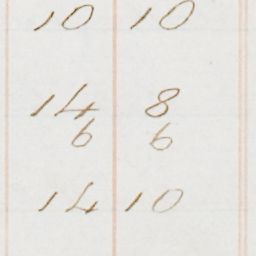 10 10
14 8
6 6
14 10